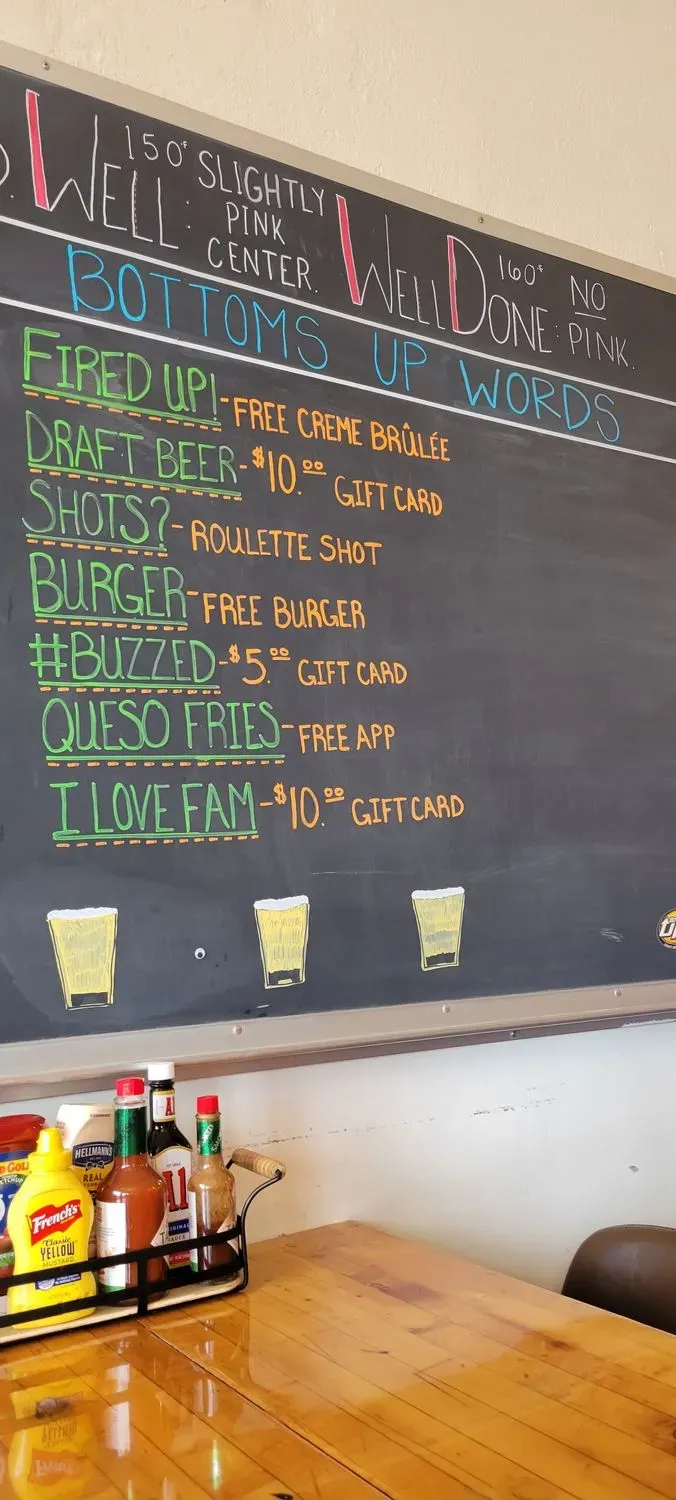 WELL: 150° SLIGHTLY
PINK
CENTER.
WELL DONE: 160° NO
PINK.
BOTTOMS UP WORDS
FIRED UP! - FREE CREME BRÛLÉE
DRAFT BEER - $10.00 GIFT CARD
SHOTS? - ROULETTE SHOT
BURGER - FREE BURGER
#BUZZED - $5.00 GIFT CARD
QUESO FRIES - FREE APP
I LOVE FAM - $10.00 GIFT CARD
HELLMANN'S
REAL
French's
Classic
YELLOW
MUSTARD
A1
ORIGINAL
SAUCE